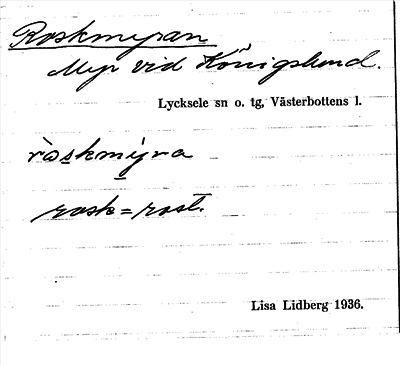 Roskmyran
Myr vid Königslund.
Lycksele sn o. tg, Västerbottens l.
ròskmỳra
rosk = rost.
Lisa Lidberg 1936.